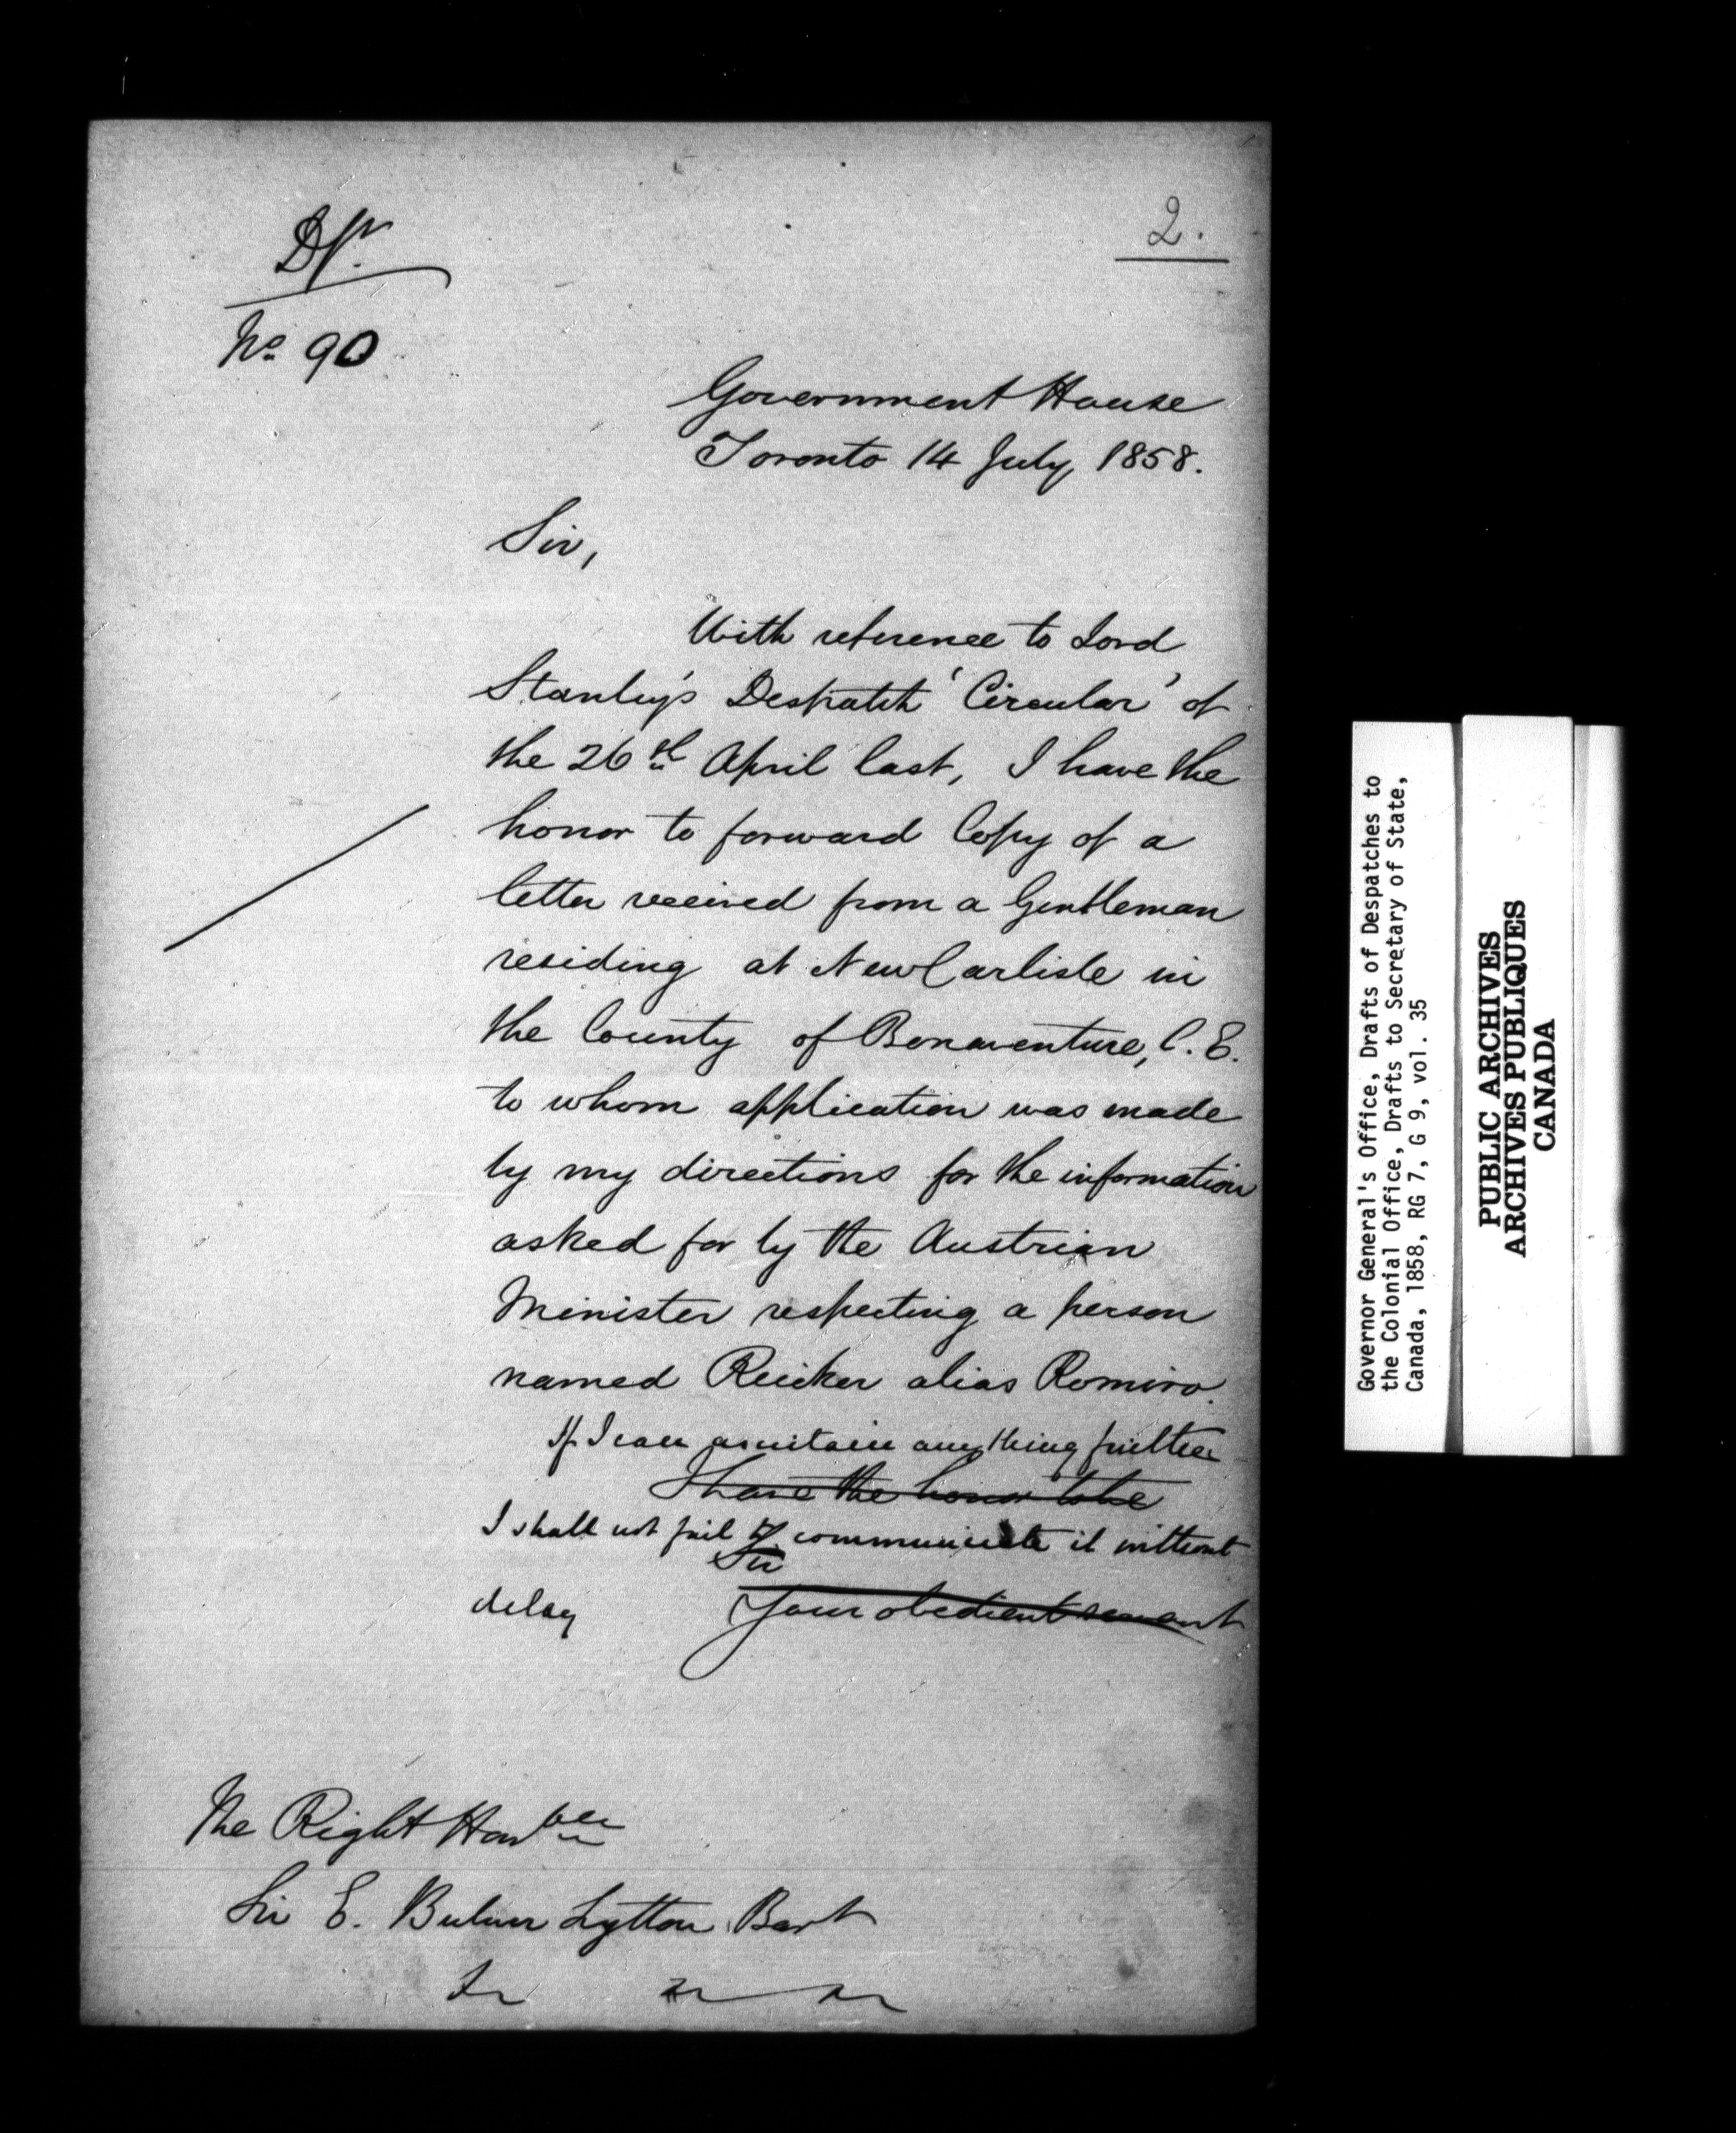 Dft.
2.
No. 90
Government House
Toronto 14 July 1858.
Sir,
With reference to Lord
Stanley's Despatch 'Circular' of
the 26th April last, I have the
honor to forward Copy of a
letter received from a Gentleman
residing at New Carlisle in
the County of Bonaventure, C.E.
to whom application was made
by my directions for the information
asked for by the Austrian
Minister respecting a person
named Reicker alias Romiro.
If I can ascertain anything further
I have the honor to be
I shall not fail to communicate it without
Sir
delay
Your obedient servant
The Right Honble
Sir E. Bulwer Lytton Bart
Governor General's Office, Drafts of Despatches to
the Colonial Office, Drafts to Secretary of State,
Canada, 1858, RG 7, G 9, vol. 35
PUBLIC ARCHIVES
ARCHIVES PUBLIQUES
CANADA